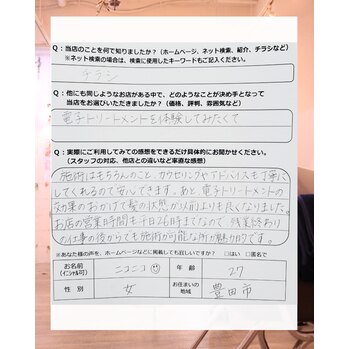 Q：当店のことを何で知りましたか？（ホームページ、ネット検索、紹介、チラシなど）
※ネット検索の場合は、検索に使用したキーワードもご記入ください。
チラシ
Q：他にも同じようなお店がある中で、どのようなことが決め手となって
当店をお選びいただきましたか？（価格、評判、雰囲気など）
電子トリートメントを体験してみたくて
Q：実際にご利用してみての感想をできるだけ具体的にお聞かせください。
（スタッフの対応、他店との違いなど率直な感想）
施術はもちろんのこと、カウセリングやアドバイスも丁寧に
してくれるので安心できます。あと電子トリートメントの
効果のおかげで髪の状態が以前よりも良くなりました。
お店の営業時間も平日26時までなので、残業終わり
の仕事の後からでも施術が可能な所が魅力的です。
※あなた様の声を、ホームページなどに掲載しても宜しいですか？ □はい □匿名で
お名前 ニコニコ 年齢 27
（イニシャル可）
性別 女 お住まいの地域 豊田市